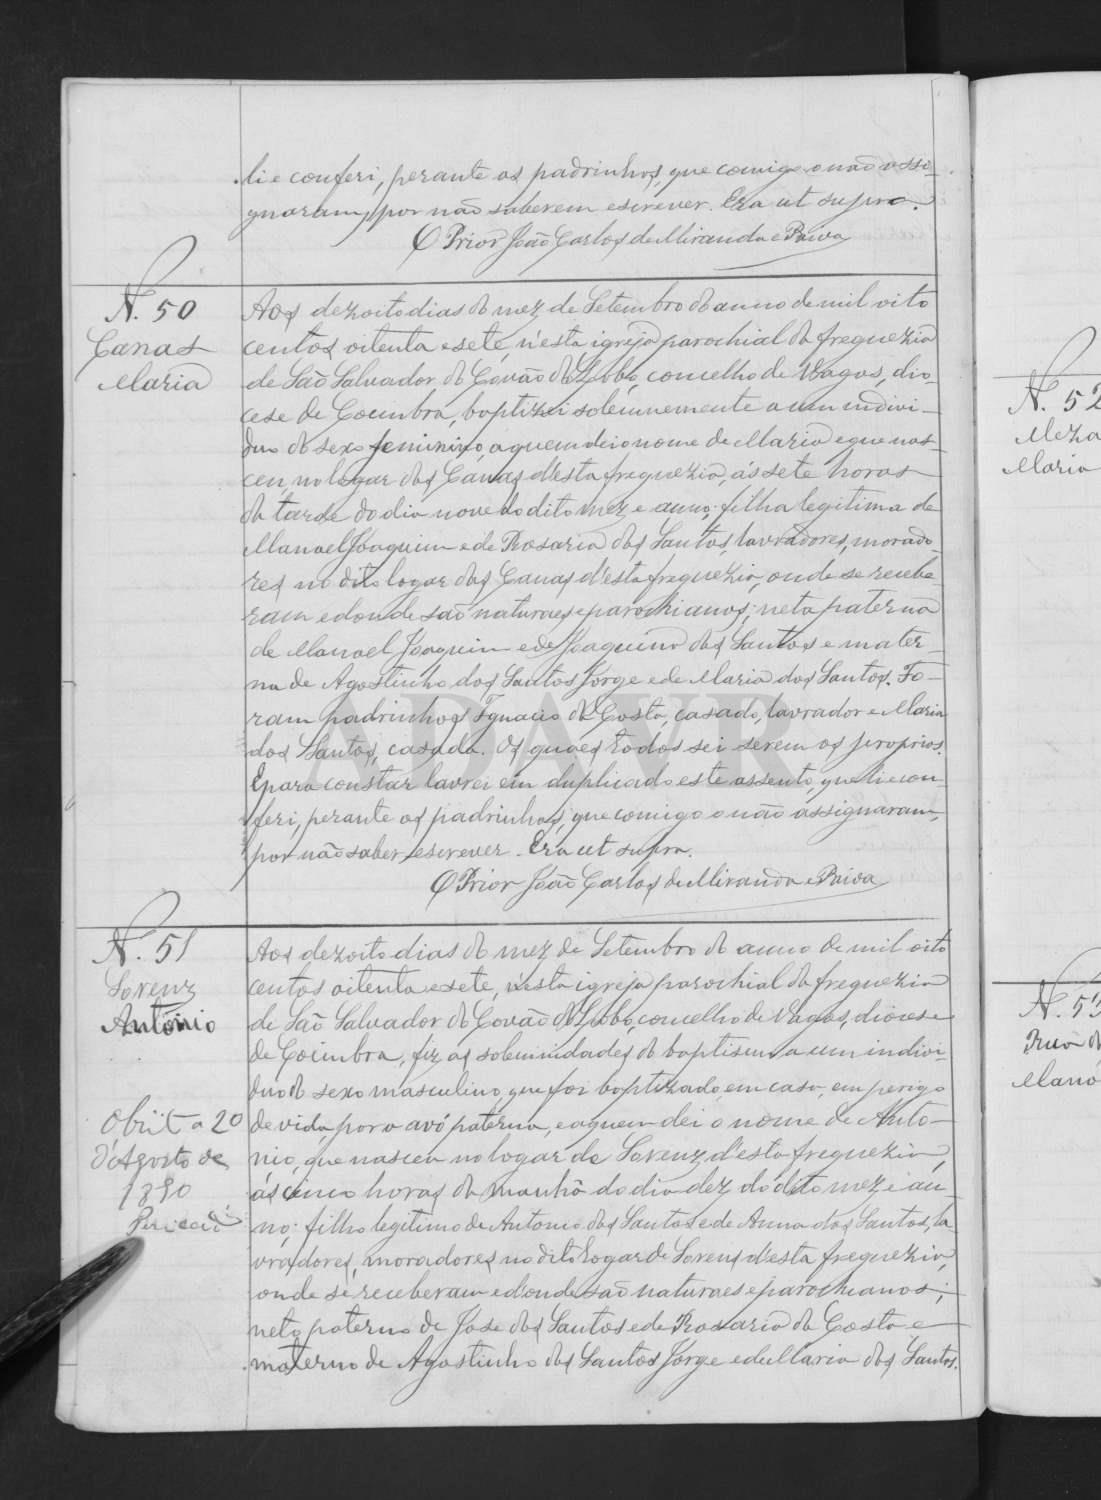 li e conferi, perante os padrinhos, que comigo o não assi-
gnaram, por não saberem escrever. Era ut supra.
O Prior João Carlos de Miranda e Paiva
N. 50
Canas
Maria
Aos dezoito dias do mez de Setembro do anno de mil oito
centos oitenta e sete, n'esta igreja parochial da freguezia
de São Salvador do Covão do Lobo, concelho de Vagos, dio-
cese de Coimbra, baptizei solemnemente a um indivi-
duo do sexo feminino, a quem dei o nome de Maria e que nas-
ceu no logar das Canas d'esta freguezia, ás sete horas
da tarde do dia nove do dito mez e anno; filha legitima de
Manoel Joaquim e de Rosaria dos Santos, lavradores, morado-
res no dito logar das Canas d'esta freguezia, onde se recebe-
ram e donde são naturaes e parochianos; neta paterna
de Manoel Joaquim e de Joaquina dos Santos e mater-
na de Agostinho dos Santos Jorge e de Maria dos Santos. Fo-
ram padrinhos Ignacio da Costa, casado, lavrador e Maria
dos Santos, casada. Os quaes todos sei serem os proprios.
E para constar lavrei em duplicado este assento, que li e con-
feri, perante os padrinhos, que comigo o não assignaram,
por não saber escrever. Era ut supra.
O Prior João Carlos de Miranda e Paiva
N. 51
Sorenz
Antonio
Obiit a 20
d'Agosto de
1890
Aos dezoito dias do mez de Setembro do anno de mil oito
centos oitenta e sete, n'esta igreja parochial da freguezia
de São Salvador do Covão do Lobo, concelho de Vagos, diocese
de Coimbra, fiz as solemnidades do baptismo a um indivi-
duo do sexo masculino, que foi baptizado em casa, em perigo
de vida, por a avó paterna, e a quem dei o nome de Anto-
nio, que nasceu no logar de Sorenz d'esta freguezia,
ás cinco horas da manhã do dia dez do dito mez e an-
no; filho legitimo de Antonio dos Santos e de Anna dos Santos, la-
vradores, moradores no dito logar de Sorenz d'esta freguezia,
onde se receberam e d'onde são naturaes e parochianos;
neto paterno de José dos Santos e de Rosaria da Costa e
materno de Agostinho dos Santos Jorge e de Maria dos Santos.
N. 52
Meza
Maria
N. 53
Mano
ADAVR